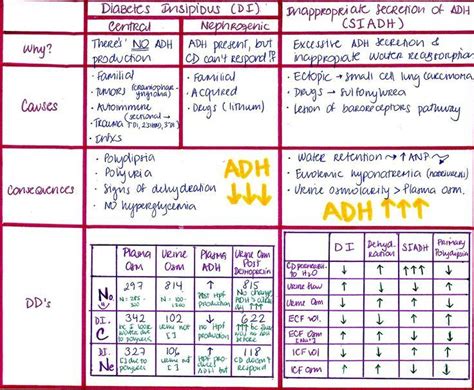 Diabetes Insipidus (DI)
Inappropriate Secretion of ADH
(SIADH)
Central
Nephrogenic
Why?
There's NO ADH
production
ADH present, but
CD can't respond!?
Excessive ADH secretion &
inappropiate water reabsorption
Causes
• Familial
• Tumors (craniophar-
yngioma)
• Autoimmune
• Trauma
• Infxs
• Familial
• Acquired
• Drugs (lithium)
• Ectopic → small cell lung carcinoma
• Drugs → sulfonylurea
• Lesion of baroreceptors pathway
Consequences
• Polydipsia
• Polyuria
• Signs of dehydration
• NO hyperglycemia
ADH
↓↓↓
• Water retention → ↑↑ ANP
• Euvolemic hyponatremia
• Urine osmolarity > Plasma osm.
ADH ↑↑↑
DD's
Plasma Osm
Urine Osm
Plasma ADH
Urine Osm Post
No.
297
814
↑
815
DI. C
342
102
↓
622
DI. Ne
327
106
↑
118
DI
Dehyd-
ration
SIADH
Primary
Polydipsia
CD permeab.
to H2O
↓ ↑ ↑↑↑ ↓
Urine flow
↑ ↓ ↓ ↑
Urine Osm
↓ ↑ ↑ ↓
ECF vol
↓ ↓ ↑ ↑
ECF Osm
↑ ↑ ↓ ↓
ICF vol
↓ ↓ ↑ ↑
ICF Osm
↑ ↑ ↓ ↓